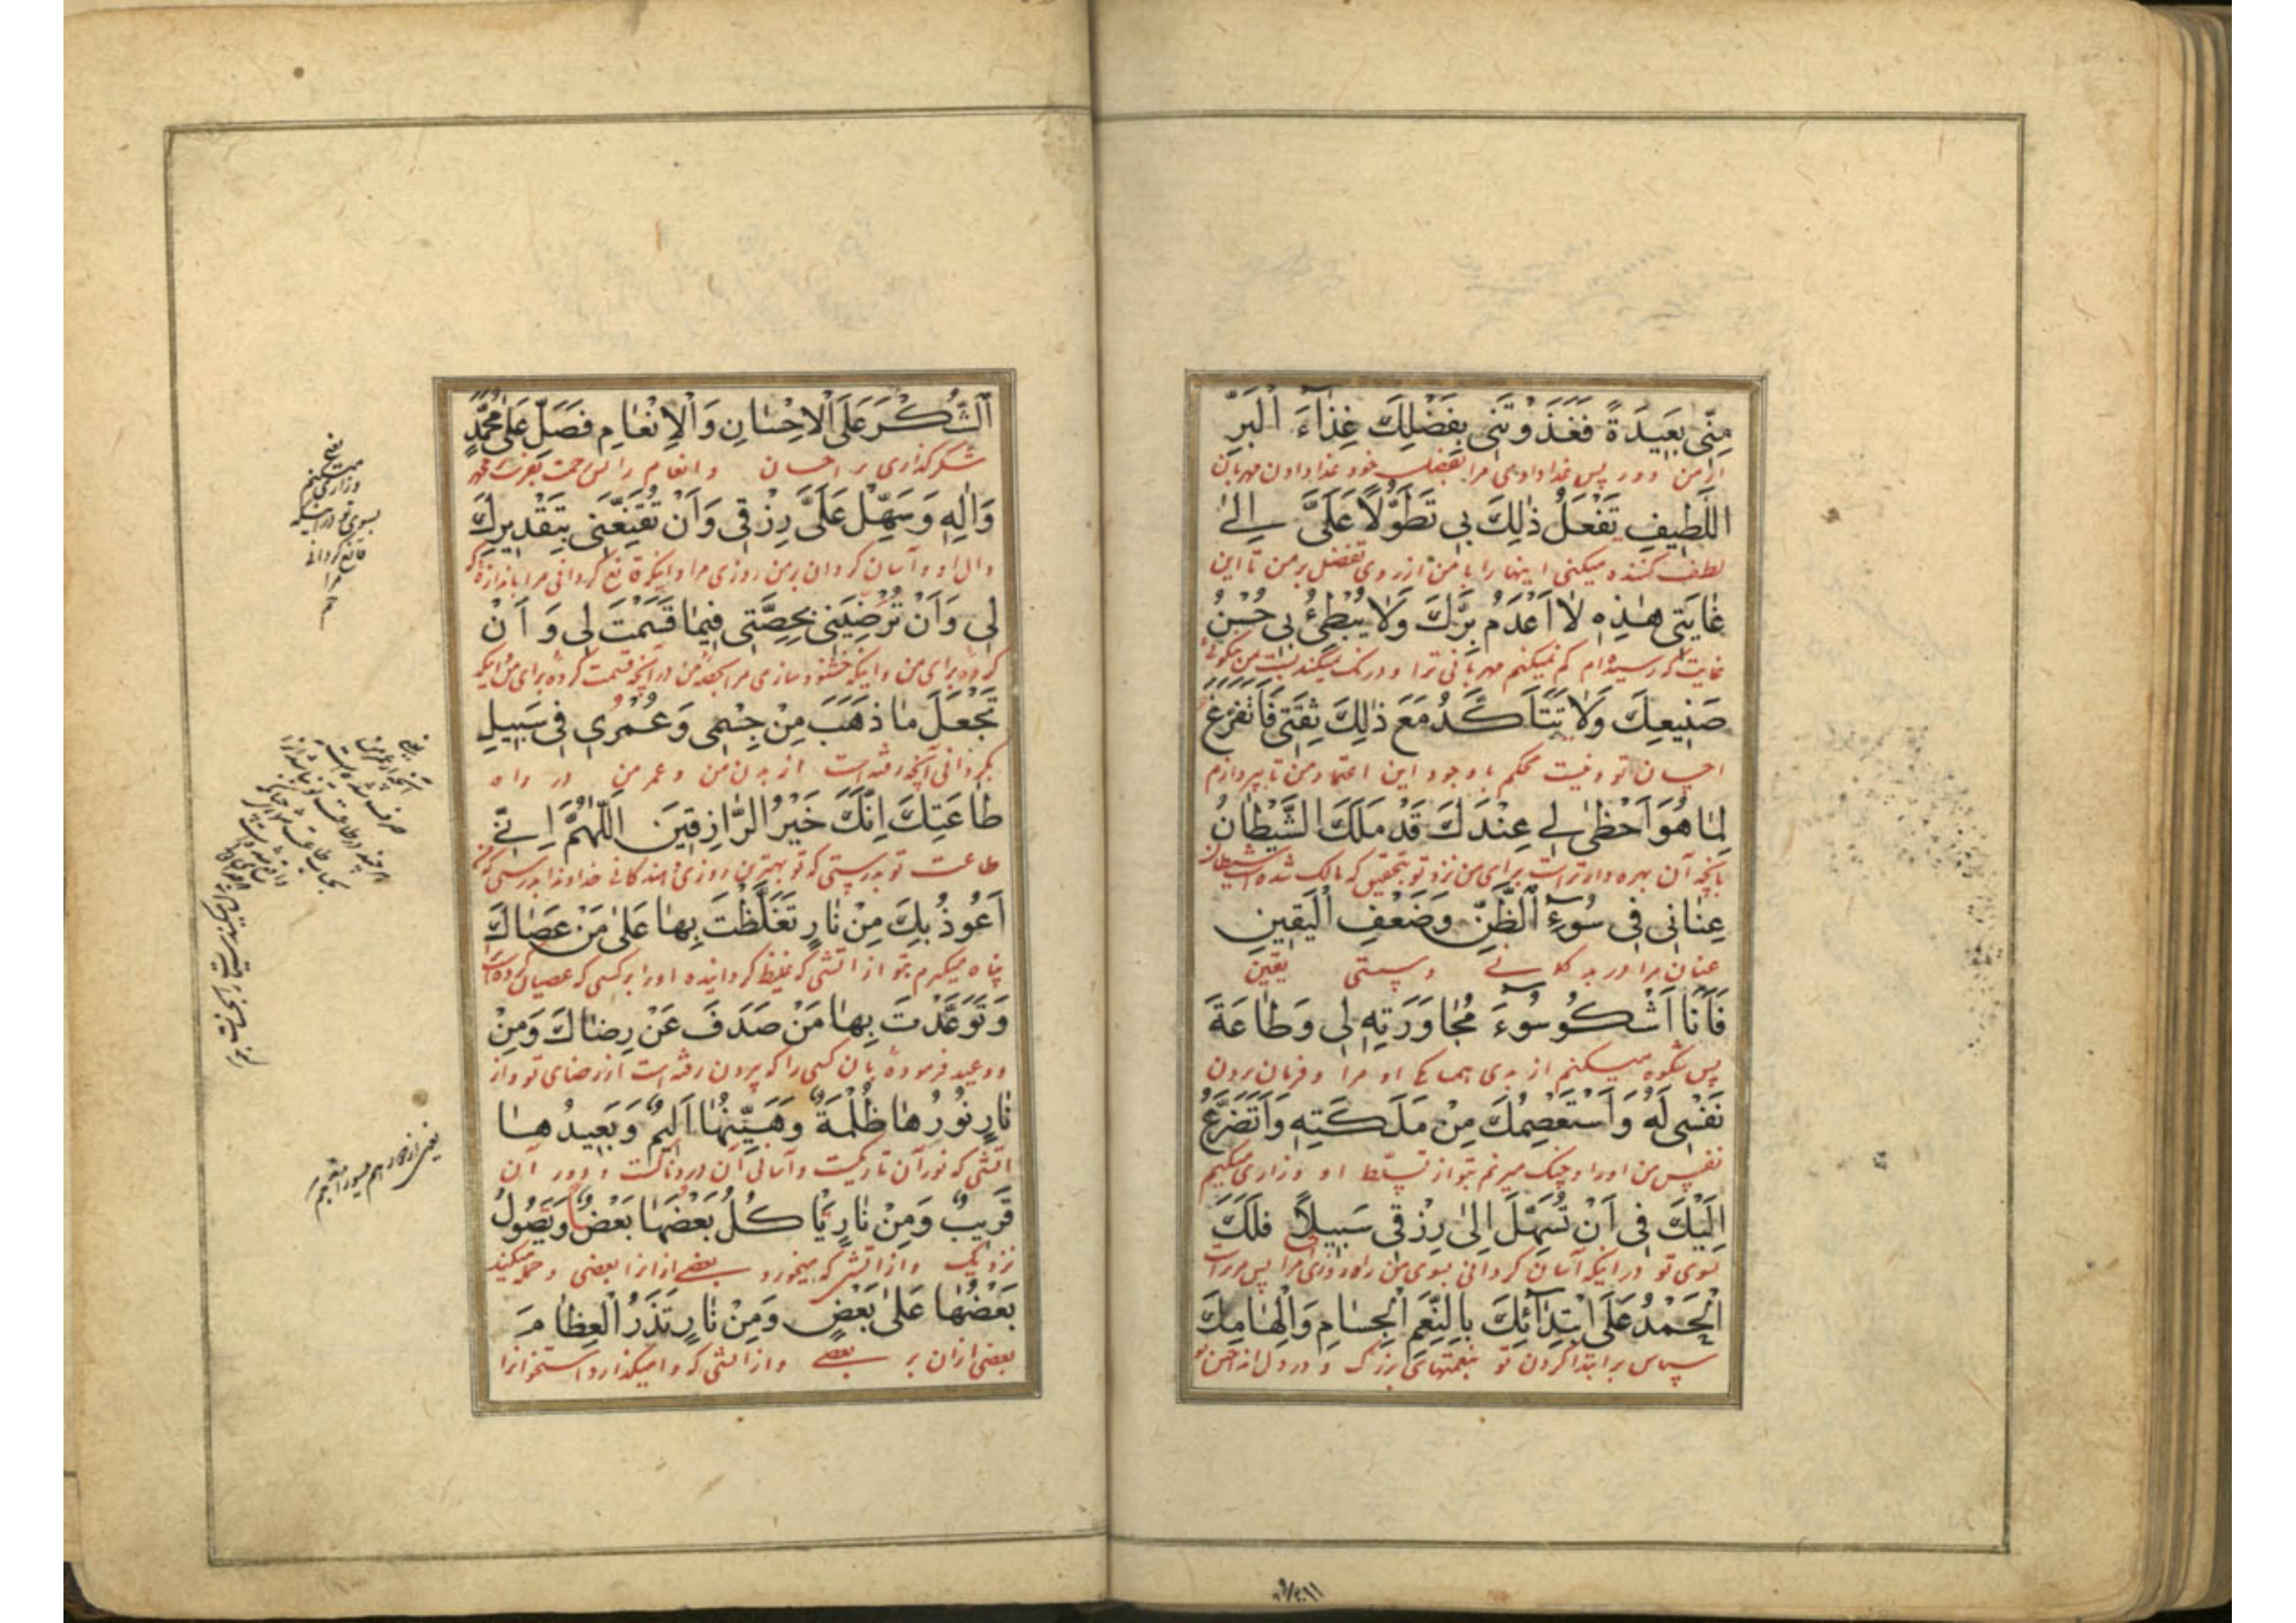 مِنّى بَعِيدَةً فَغَذَوْتَنى بِفَضْلِكَ غِذآءَ الْبَرِّ
از من دور پس غذا دادهٔ مرا بفضل خود غذا دادن مهربان
اللَّطِيفِ تَفْعَلُ ذٰلِكَ بى تَطَوُّلاً عَلَىَّ اِلىٰ
لطف کننده میکنی اینها را با من از روی تفضل بر من تا این
غايَتى هٰذِهِ لا اَعْدَمُ بِرَّكَ وَلا يُبْطِئُ بى حُسْنُ
غایت که رسیده‌ام کم نمیکنم مهربانی ترا و درنک نمیکند بمن نیکوئی
صَنيعِكَ وَلا تَتَاَكَّدُ مَعَ ذٰلِكَ ثِقَتى فَاَتَفَرَّغَ
احسان تو و نیست محکم با وجود این اعتماد من تا بپردازم
لِما هُوَ اَحْظىٰ لى عِنْدَكَ قَدْ مَلَكَ الشَّيْطانُ
بآنچه آن بهره دارتر است برای من نزد تو بتحقیق که مالک شده است شیطان
عِنانى فى سُوءِ الظَّنِّ وَضَعْفِ الْيَقينِ
عنان مرا در بد کمانی و سستی یقین
فَاَنَا اَشْكُو سُوءَ مُجاوَرَتِهِ لى وَطاعَةَ
پس شکوه میکنم از بدی همسایکی او مرا و فرمان بردن
نَفْسى لَهُ وَاَسْتَعْصِمُكَ مِنْ مَلَكَتِهِ وَاَتَضَرَّعُ
نفس من او را و چنک میزنم بتو از تسلط او و زاری میکنم
اِلَيْكَ فى اَنْ تُسَهِّلَ اِلىٰ رِزْقى سَبيلاً فَلَكَ
بسوی تو در اینکه آسان کردانی بسوی من راه روزی مرا پس مر تراست
الْحَمْدُ عَلَى ابْتِدآئِكَ بِالنِّعَمِ الْجِسامِ وَاِلْهامِكَ
سپاس بر ابتدا کردن تو بنعمتهای بزرک و در دل انداختن تو
اَلشُّكْرَ عَلَى الْاِحْسانِ وَالْاِنْعامِ فَصَلِّ عَلىٰ مُحَمَّدٍ
شکر کذاری بر احسان و انعام را پس رحمت بفرست بر محمد
وَالِهِ وَسَهِّلْ عَلَىَّ رِزْقى وَاَنْ تُقَنِّعَنى بِتَقْديرِكَ
و آل او و آسان کردان بر من روزی مرا و اینکه قانع کردانی مرا باندازهٔ که
لى وَاَنْ تُرْضِيَنى بِحِصَّتى فيما قَسَمْتَ لى وَاَنْ
کردهٔ برای من و اینکه خشنود سازی مرا بحصهٔ من در آنچه قسمت کردهٔ برای من و اینکه
تَجْعَلَ ما ذَهَبَ مِنْ جِسْمى وَعُمْرى فى سَبيلِ
بکردانی آنچه رفته است از بدن من و عمر من در راه
طاعَتِكَ اِنَّكَ خَيْرُ الرّازِقينَ اَللّٰهُمَّ اِنّى
طاعت تو بدرستی که تو بهترین روزی دهندکانی خداوندا بدرستی که من
اَعُوذُ بِكَ مِنْ نارٍ تَغَلَّظْتَ بِها عَلىٰ مَنْ عَصاكَ
پناه میکیرم بتو از آتشی که غلیظ کردانیده او را بر کسی که عصیان کرده است
وَتَوَعَّدْتَ بِها مَنْ صَدَفَ عَنْ رِضاكَ وَمِنْ
و وعید فرمودهٔ بان کسی را که بیرون رفته است از رضای تو و از
نارٍ نُورُها ظُلْمَةٌ وَهَيِّنُها اَليمٌ وَبَعيدُها
آتشی که نور آن تاریکیست و آسانی آن دردناکست و دور آن
قَريبٌ وَمِنْ نارٍ يَاْكُلُ بَعْضُها بَعْضًا وَيَصُولُ
نزدیک و از آتشی که میخورد بعضی از آنرا بعضی و حمله میکند
بَعْضُها عَلىٰ بَعْضٍ وَمِنْ نارٍ تَذَرُ الْعِظامَ
بعضی از آن بر بعضی و از آتشی که وامیکذارد استخوانرا
یعنی
و زاری میکنم
بسوی تو در اینکه
قانع کردانی
مرا